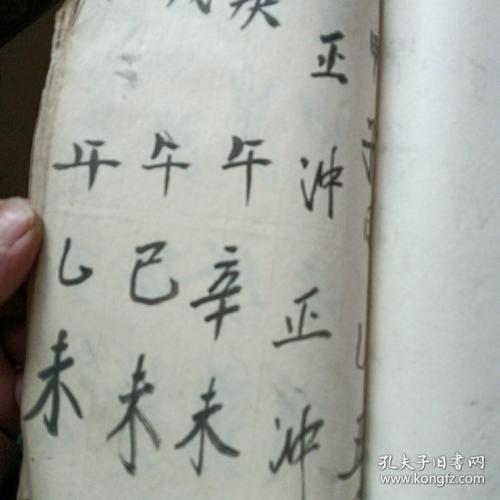 正冲正冲
午辛未
午己未
午乙未
孔夫子旧书网
www.kongfz.com